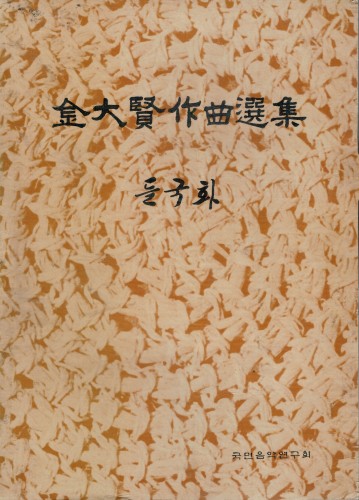 金大賢作曲選集
들국화
국민음악연구회